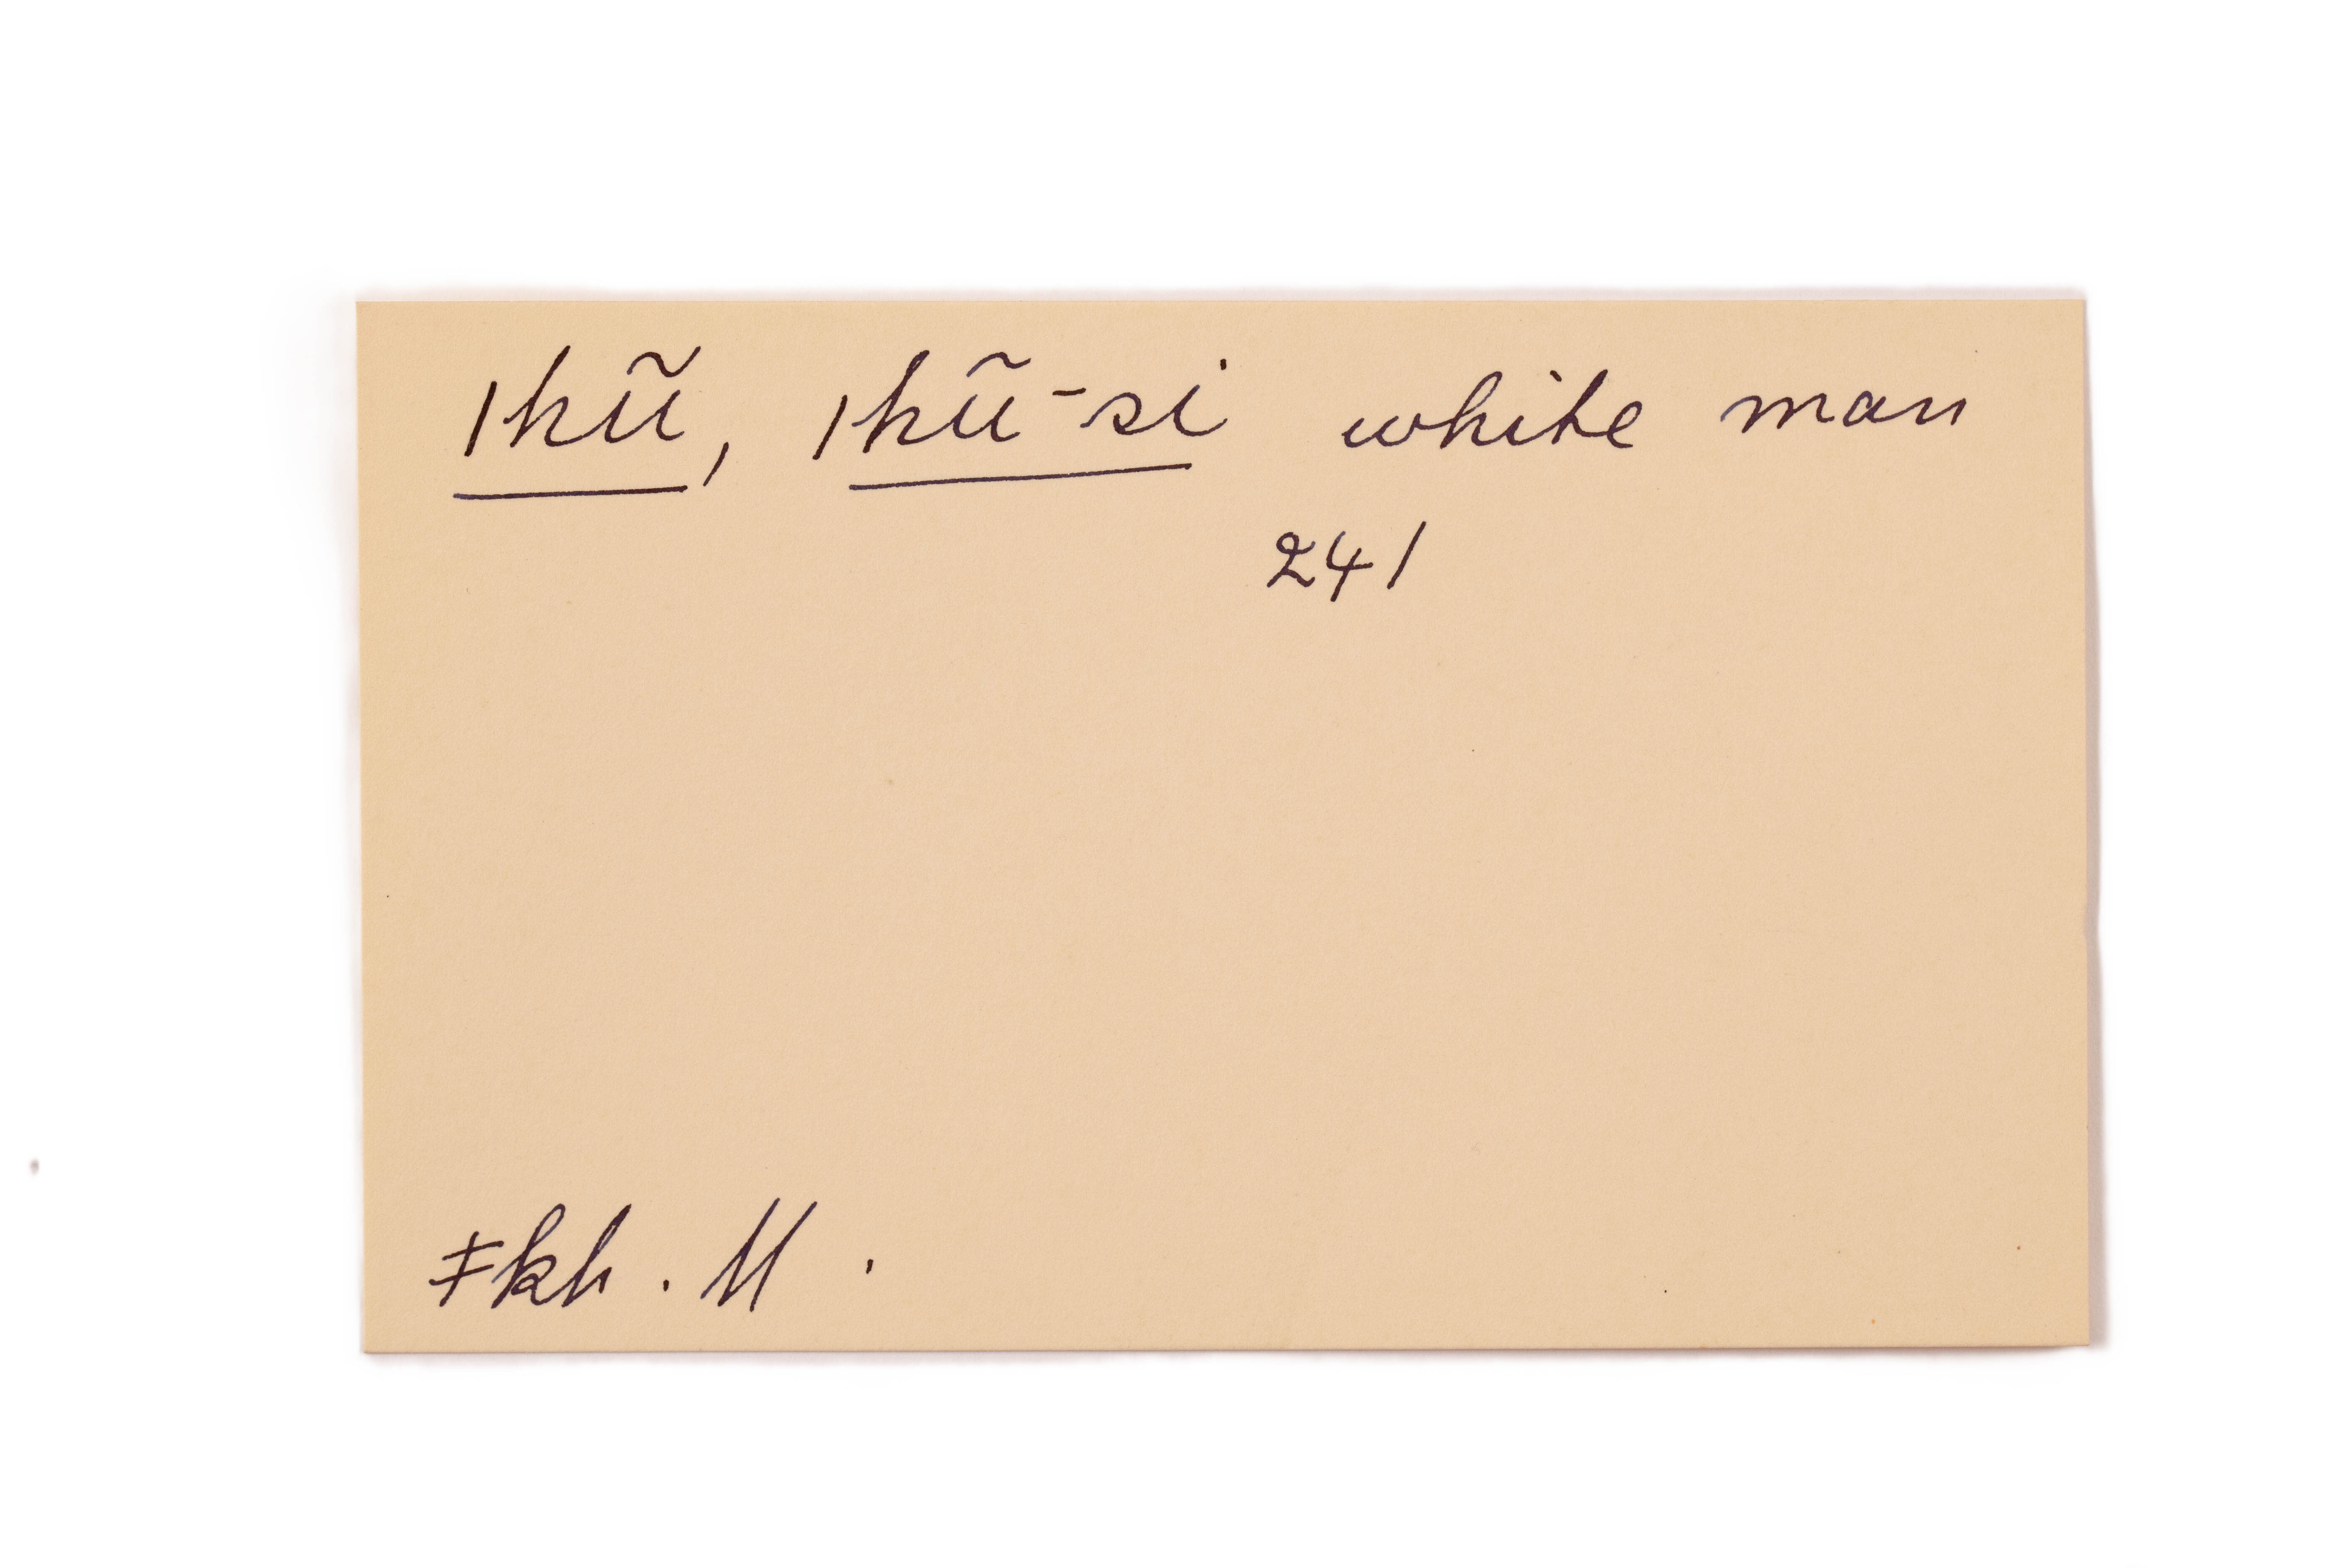 ǀhũ, ǀhũ-si white man
241
ǂkh. M.